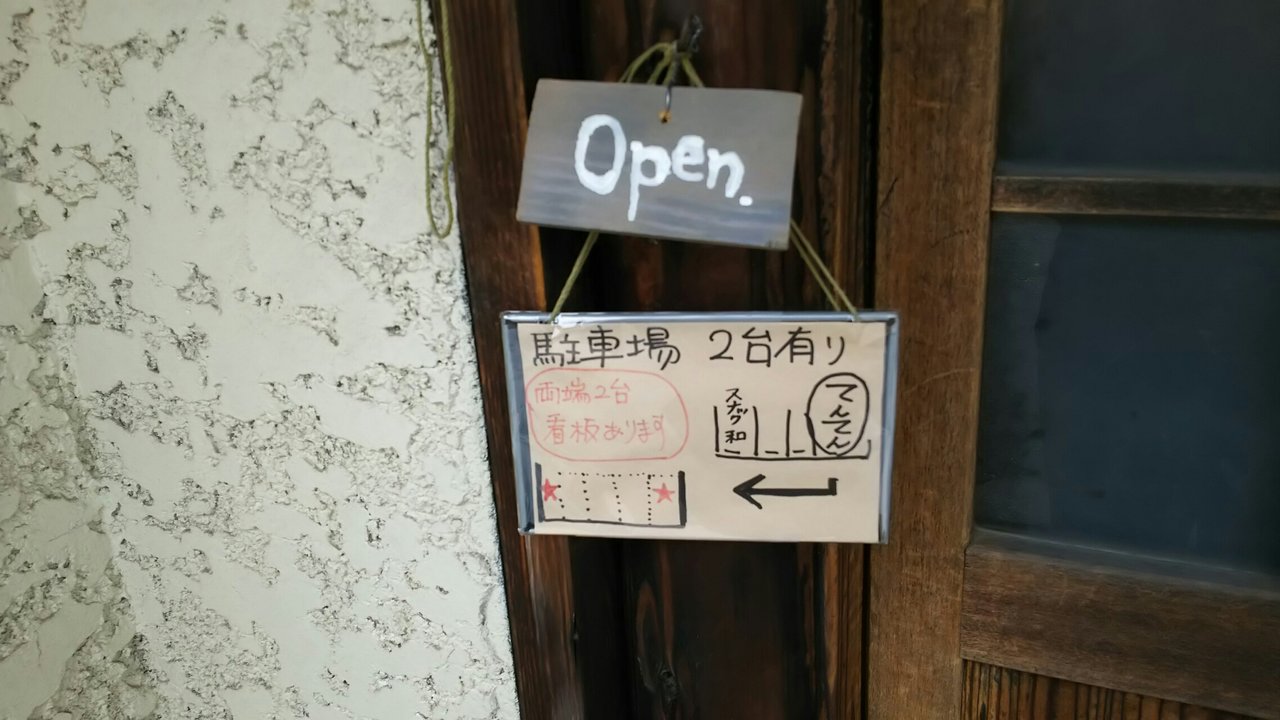 Open.
駐車場 2台有り
両端2台
看板あります
スナック和
てんてん